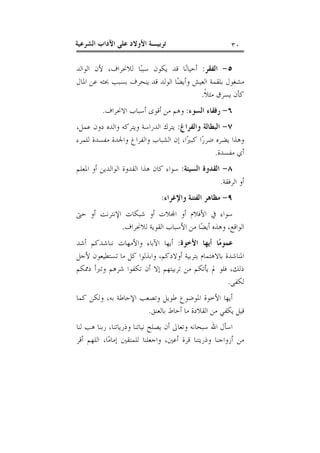 ٣٠ تربيـــة الأولاد على الآداب الشرعية
٥- الفقر: أحيانًا قد يكون سببًا للانحراف، لأن الوالد
مشغول بلقمة العيش وأيضًا الولد قد ينحرف بسبب بحثه عن المال
كأن يسرق مثلاً.
٦- رفقاء السوء: وهم من أقوى أسباب الانحراف.
٧- البطالة والفراغ: يترك الدراسة ويتركه والده دون عمل،
وهذا يضره ضررًا كبيرًا، إن الشباب والفراغ والجدة مفسدة للمرء
أي مفسدة.
٨- القدوة السيئة: سواء كان هذا القدوة الوالدين أو المعلم
أو الرفقة.
٩- مظاهر الفتنة والإغراء:
سواء في الأفلام أو المجلات أو شبكات الإنترنت أو حتى
الواقع، وهذه أيضًا من الأسباب القوية للانحراف.
عمومًا أيها الأخوة: أيها الآباء والأمهات نناشدكم أشد
المناشدة بالاهتمام بتربية أولادكم، وابذلوا كل ما تستطيعون لأجل
ذلك، فلو لم يأتكم من تربيتهم إلا أن تكفوا شرهم وتبرأ ذمتكم
لكفى.
أيها الأخوة الموضوع طويل وتصعب الإحاطة به، ولكن كما
قيل يكفي من القلادة ما أحاط بالعنق.
اسأل الله سبحانه وتعالى أن يصلح نياتنا وذرياتنا، ربنا هب لنا
من أزواجنا وذريتنا قرة أعين، واجعلنا للمتقين إمامًا، اللهم أقر